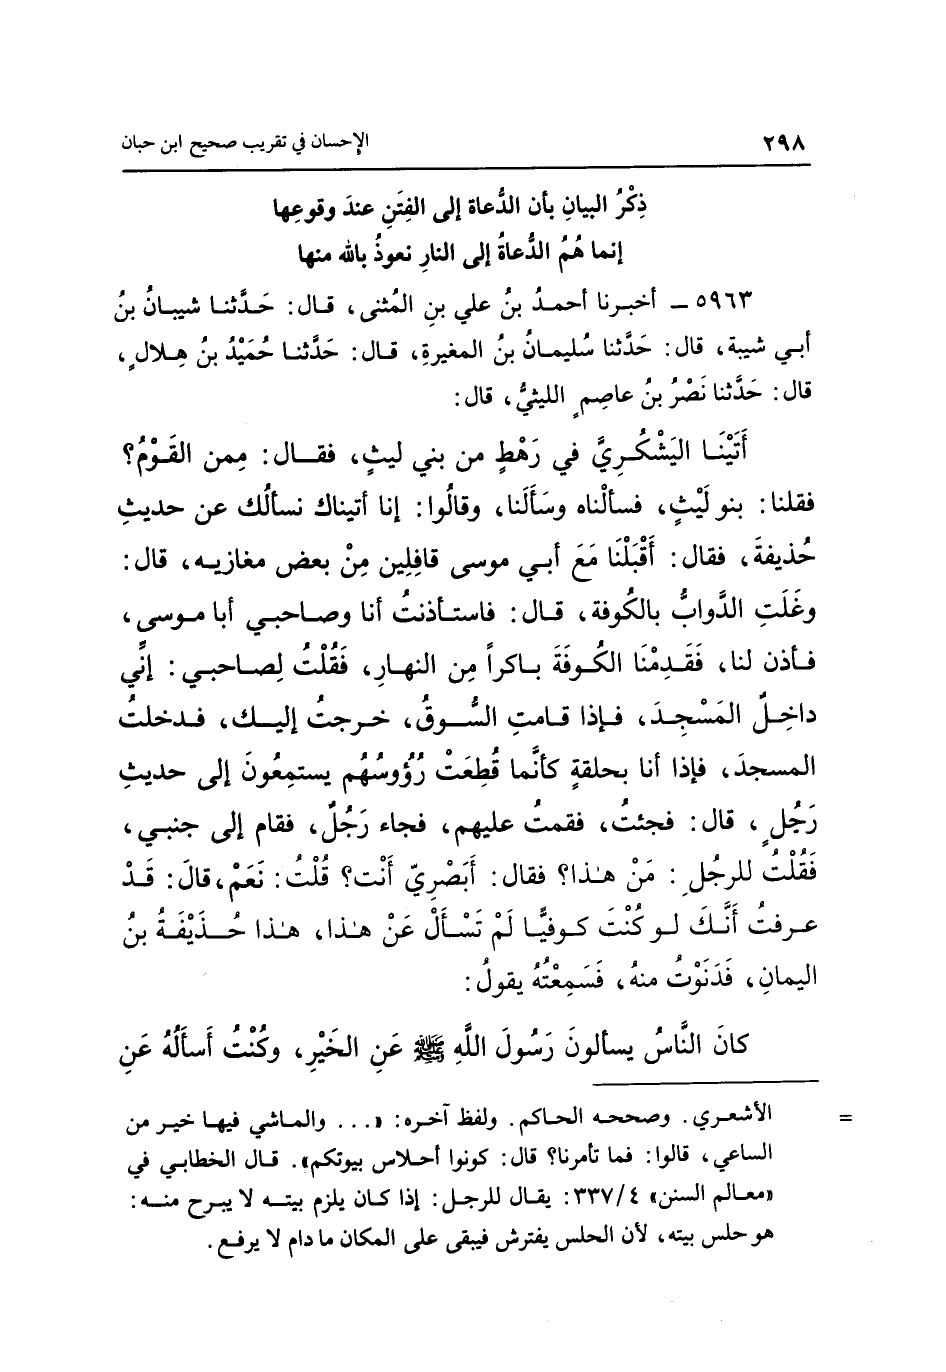 ٢٩٨ الإحسان في تقريب صحيح ابن حبان
ذِكْرُ البيانِ بأن الدُّعاة إلى الفِتَنِ عندَ وقوعِها
إنما هُمُ الدُّعاةُ إلى النارِ نعوذُ بالله منها
٥٩٦٣ ـ أخبرنا أحمدُ بنُ علي بنِ المُثنى، قال: حَدَّثنا شيبانُ بنُ
أبي شيبة، قال: حَدَّثنا سُليمانُ بنُ المغيرةِ، قال: حَدَّثنا حُمَيْدُ بنُ هِلالٍ،
قال: حَدَّثنا نَصْرُ بنُ عاصِمٍ الليثيُّ، قال:
أَتَيْنَا اليَشْكُرِيَّ في رَهْطٍ من بني ليثٍ، فقال: مِمن القَوْمُ؟
فقلنا: بنو لَيْثٍ، فسألْناه وسَأَلَنا، وقالُوا: إنا أتيناك نسألُك عن حديثِ
حُذيفةَ، فقال: أَقْبَلْنَا مَعَ أبي موسى قافِلِين مِنْ بعض مغازيه، قال:
وغَلَتِ الدَّوابُّ بالكُوفة، قال: فاستأذنتُ أنا وصاحبي أبا موسى،
فأذن لنا، فَقَدِمْنَا الكُوفَةَ باكراً مِن النهارِ، فَقُلْتُ لِصاحبي: إنِّي
داخِلٌ المَسْجِدَ، فإذا قامتِ السُّوقُ، خرجتُ إليك، فدخلتُ
المسجدَ، فإذا أنا بحلقةٍ كأنَّما قُطِعَتْ رُؤُوسُهُم يستمِعُونَ إلى حديثِ
رَجُلٍ، قال: فجئتُ، فقمتُ عليهم، فجاء رَجُلٌ، فقام إلى جنبي،
فَقُلْتُ للرجُلِ: مَنْ هذا؟ فقال: أَبَصْرِيّ أَنْت؟ قُلْتُ: نَعَمْ، قالَ: قَدْ
عرفتُ أَنَّكَ لو كُنْتَ كوفيًّا لَمْ تَسْأَلْ عَنْ هذا، هذا حُذَيْفَةُ بنُ
اليمانِ، فَدَنَوْتُ منهُ، فَسَمِعْتُهُ يقولُ:
كانَ النَّاسُ يسألونَ رَسُولَ اللَّهِ ﷺ عَنِ الخَيْرِ، وكُنْتُ أَسأَلُهُ عَنِ
= الأشعري. وصححه الحاكم. ولفظ آخره: «... والماشي فيها خير من
الساعي، قالوا: فما تأمرنا؟ قال: كونوا أحلاس بيوتكم». قال الخطابي في
«معالم السنن» ٣٣٧/٤: يقال للرجل: إذا كان يلزم بيته لا يبرح منه:
هو حلس بيته، لأن الحلس يفترش فيبقى على المكان ما دام لا يرفع.